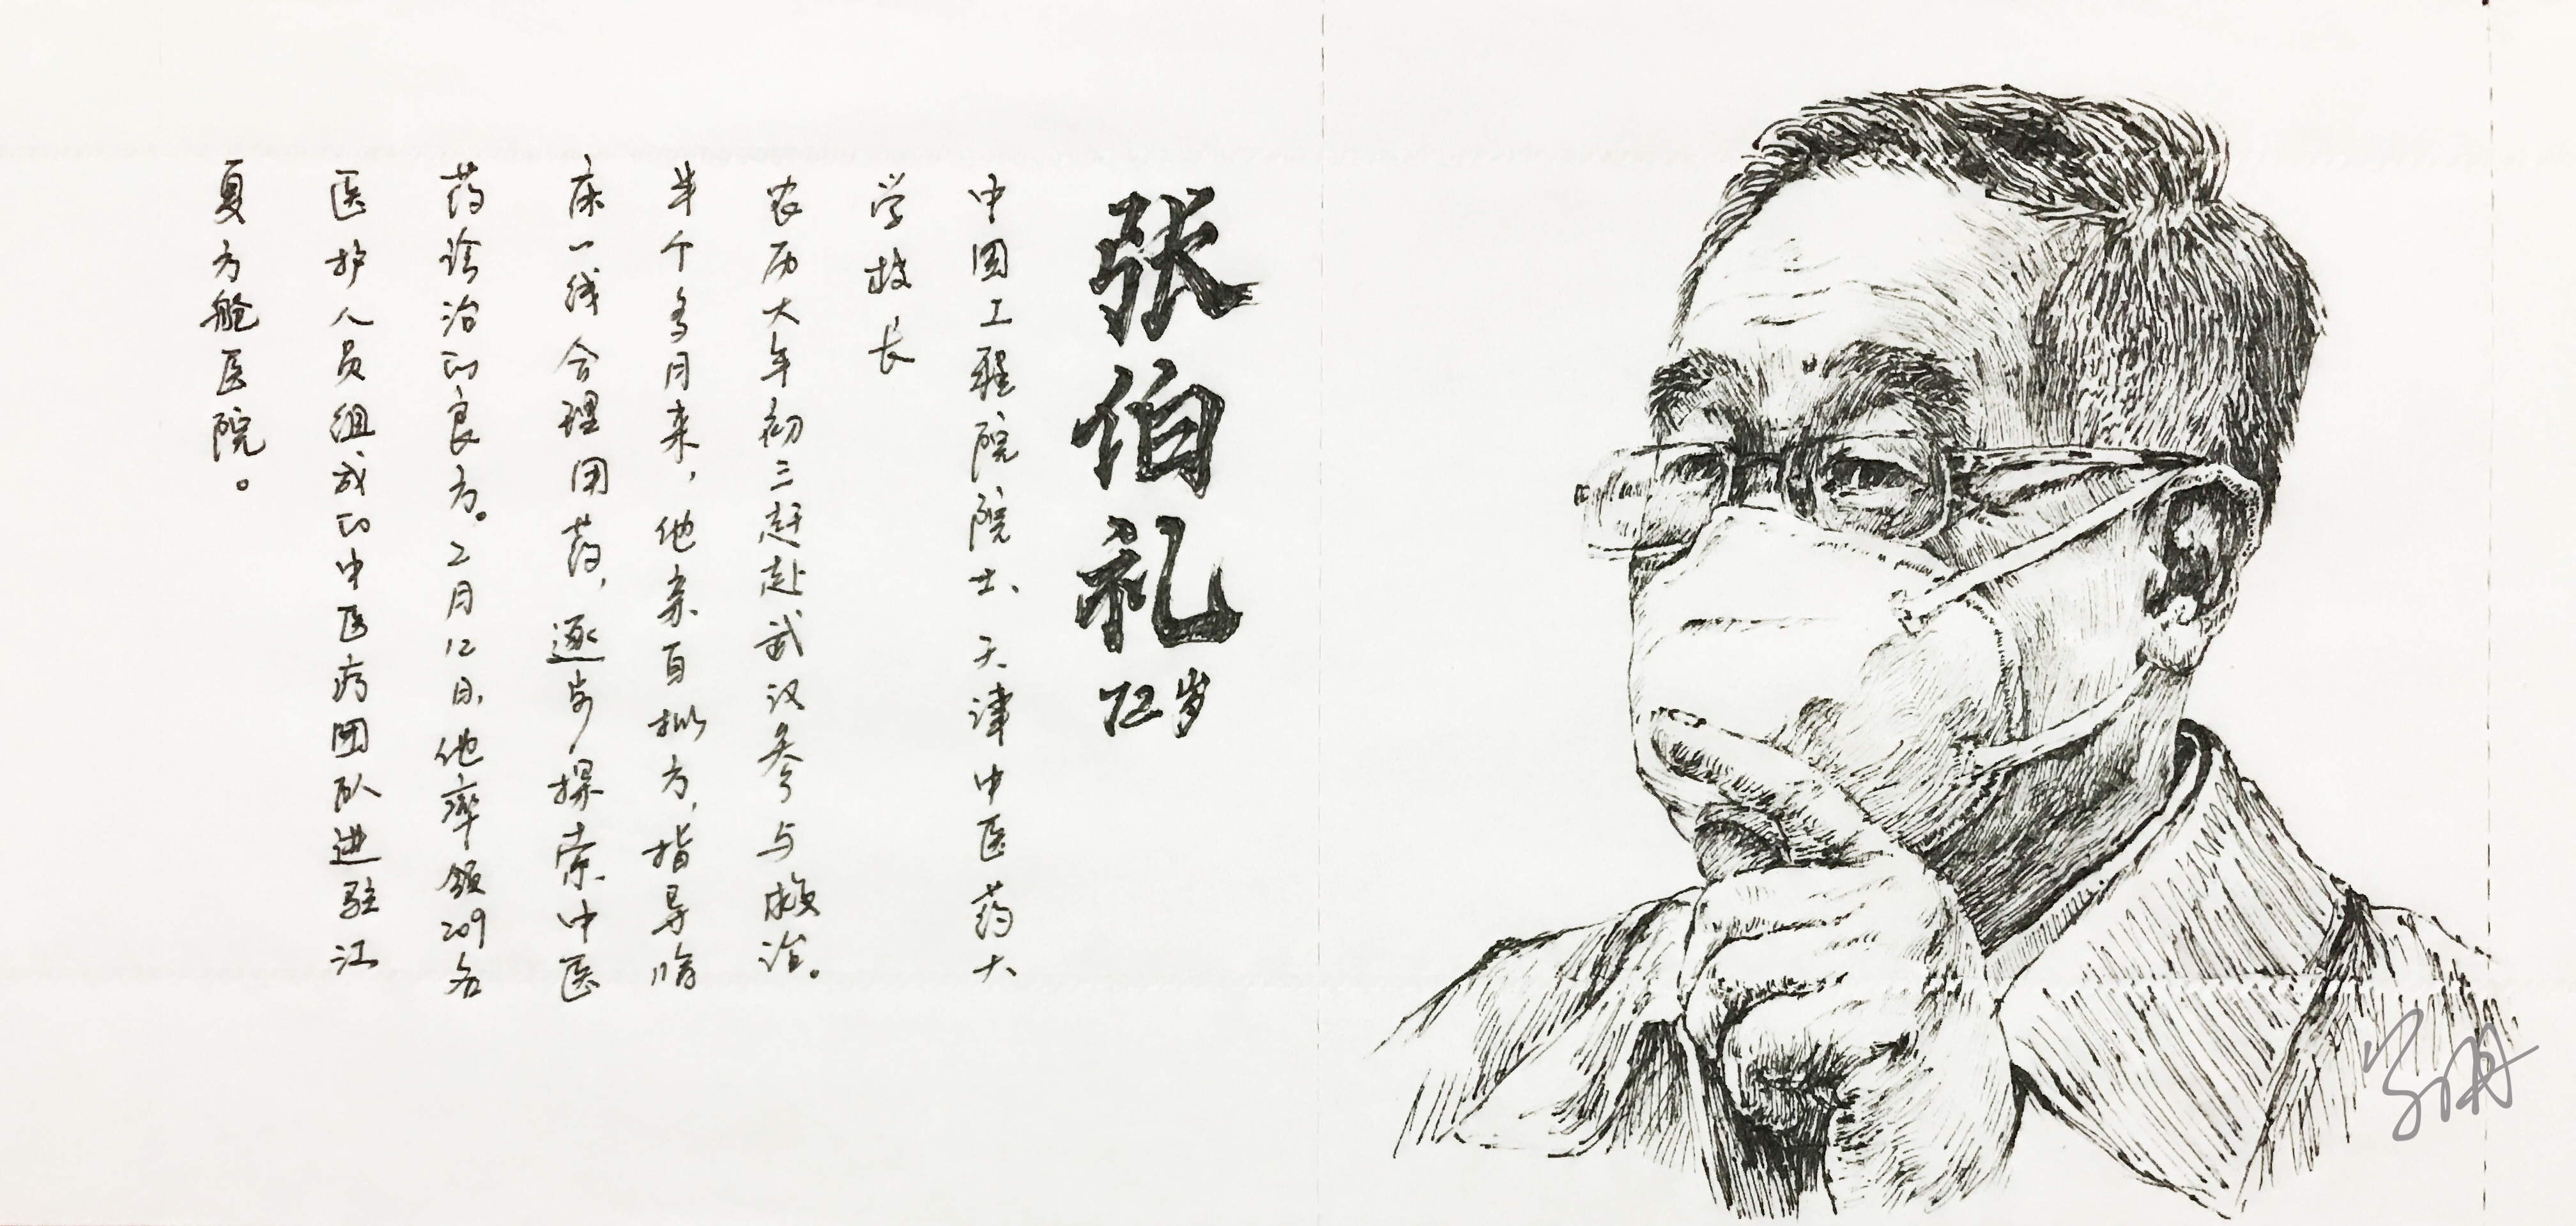 张伯礼 72岁
中国工程院院士、天津中医药大
学校长
农历大年初三赶赴武汉参与救治。
半个多月来，他亲自拟方，指导临
床一线合理用药，逐步探索中医
药诊治的良方。2月12日，他率领209名
医护人员组成的中医疗团队进驻江
夏方舱医院。